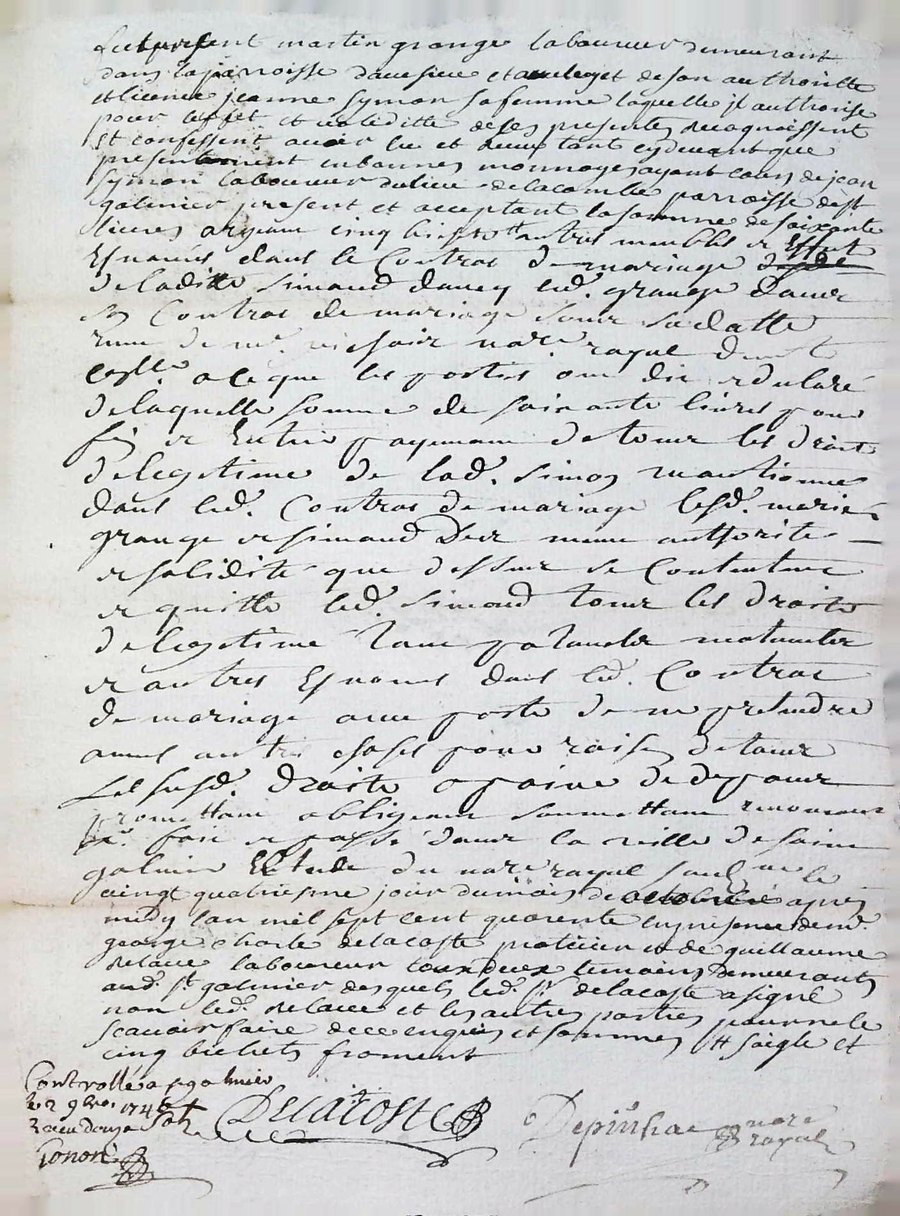 fut present martin grange laboureur demeurant
dans la paroisse daveisieu et de son authoritte
et licence jeanne symon sa femme laquelle jl authorise
pour leffet et validitte desd. presentes recognoissent
et confessent avoir eu et receu tant cydevant que
presentement en bonnes monnoyes ayant cours de jean
symon laboureur du lieu delacombe parroisse de st
galmier present et acceptant la somme de soixante
livres argent cinq bichets # autres meubles et Effect
Esnoncés dans le Contrat de mariage
de laditte Simond avecq led. grange dans
son Contrat de mariage sous sa datte
receu de me. nore. royal dud
a ce que les parties ont dit et declaré
de laquelle somme de soixante livres pour
fin et Entier payement de tous les droits
de legitime de lad. Simon mentionnes
dans led. Contrat de mariage lesd. mariés
grange et Simond De meme authorité
et solidité que dessus se Contentent
et quitte led. Simond tous les droits
de legitime tant paternelle maternelle
et autres Esnoncés dans led. Contrat
de mariage avec pacte de ne pretendre
aucunes autres choses pour raison de tous
Les susd. droits a paine de depens
promettant obligeant soumettant renonceant
&a. fait et passé dans la ville de saint
galmier Estude du nore royal le
vingt quatriesme jour du mois de octobre apres
midy lan mil sept cent quarente cinq presence de mr.
george Charle delacoste praticien et de guillaume
relave laboureur tous deux temoins Demeurants
aud. st galmier desquels led. sr. delacoste a signé
non led. relave et les autres parties pour ne le
scavoir faire de ce enquis et sommés # saigle et
cinq bichets froment
Controllé a st galmier
le 2 9bre 174
Receu douze sols
Gonon
Delacoste
Depinhac nore
royal